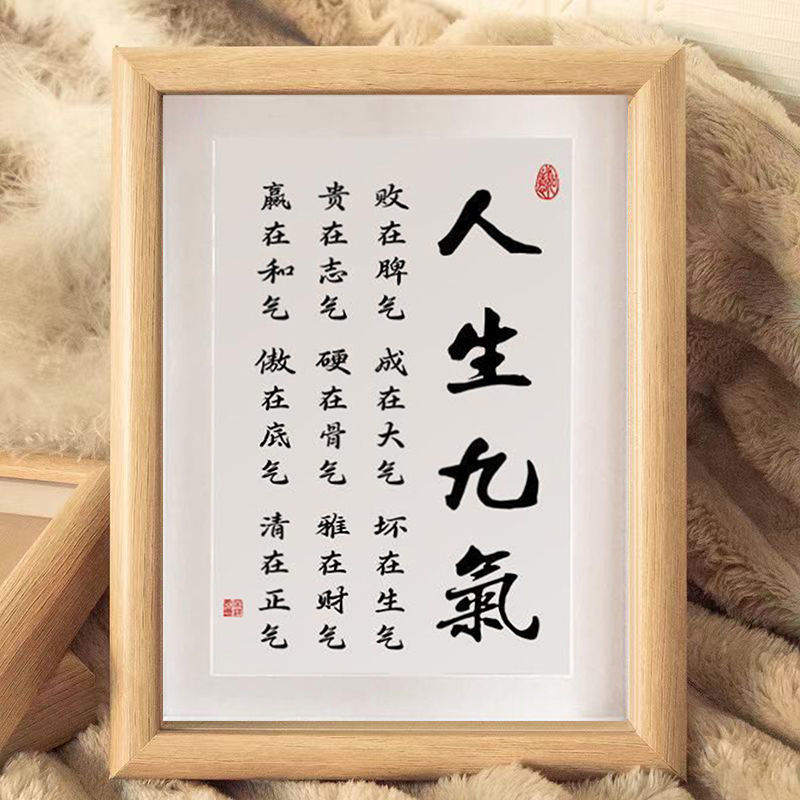 人生九氣
败在脾气 成在大气 坏在生气
贵在志气 硬在骨气 雅在财气
赢在和气 傲在底气 清在正气